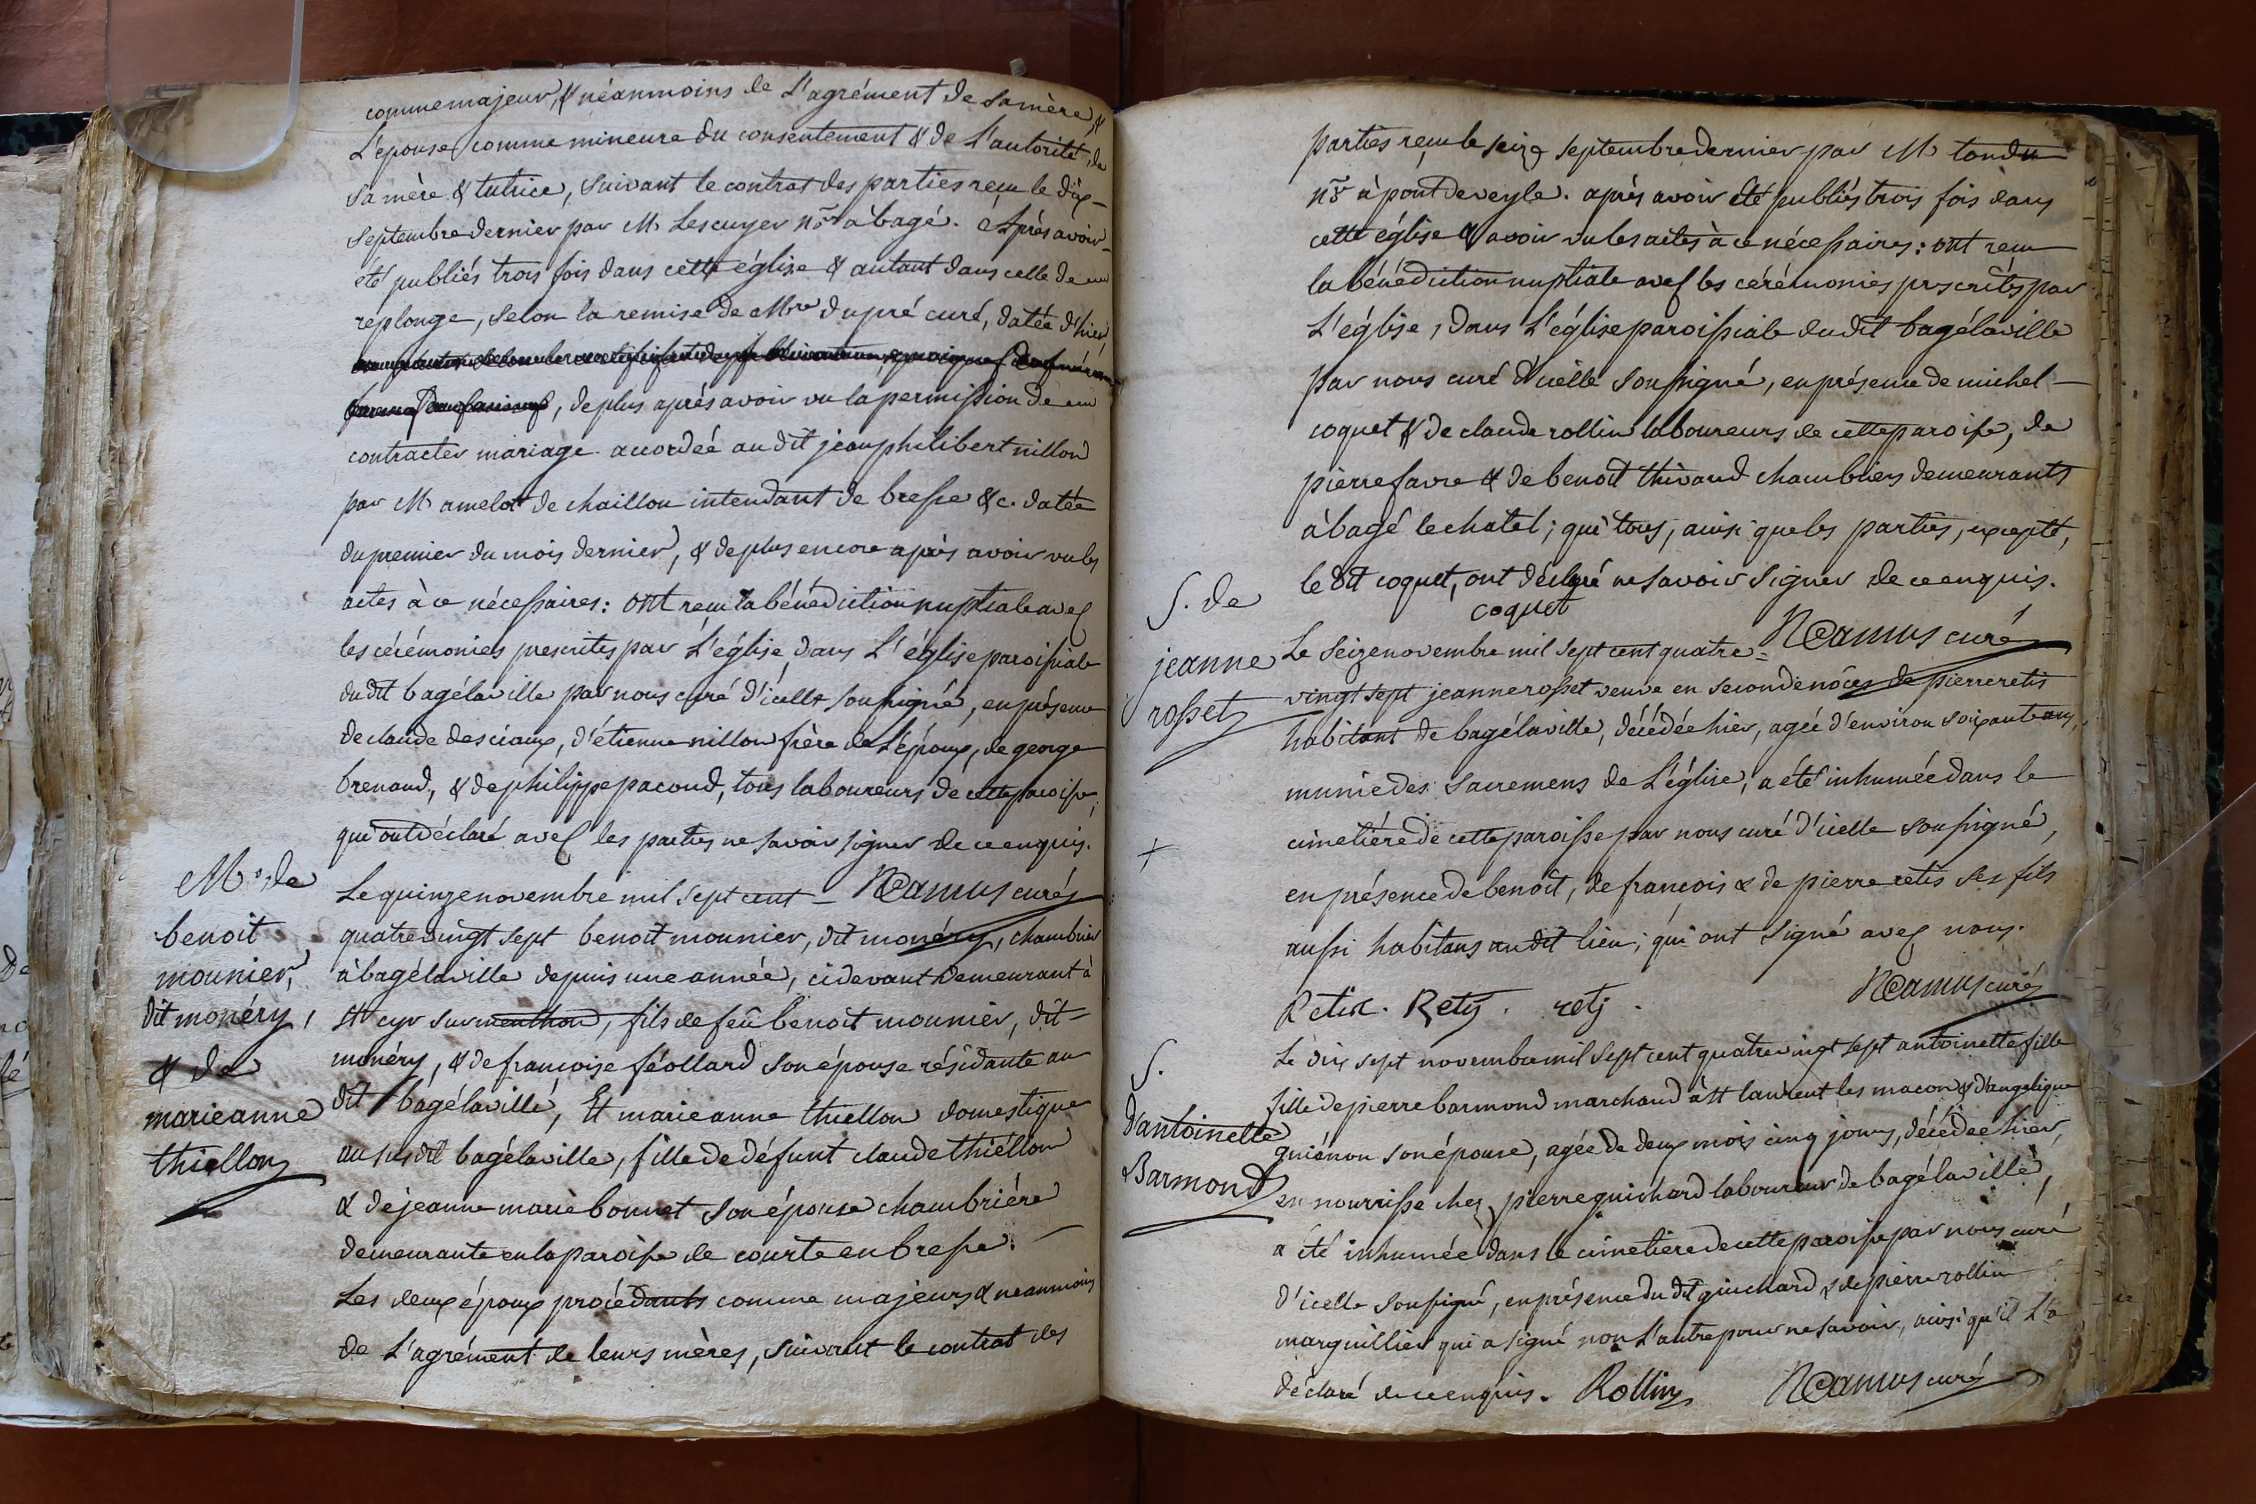 comme majeur, & néanmoins de L'agrément de sa mère, &
L'épouse comme mineure du consentement & de L'autorité de
sa mère & tutrice, suivant le contrat des parties reçu le dix
septembre dernier par M. Lescuyer nre à bagé. Après avoir
été publiés trois fois dans cette église & autant dans celle de
replonge, selon la remise de Mre dupré curé, datée d'hier
, de plus après avoir vu la permission de
contracter mariage accordée au dit jean philibert nillon
par M. amelot de chaillou intendant de bresse &c. datée
du premier du mois dernier, & de plus encore après avoir vu les
actes à ce nécessaires: ont reçu la bénédiction nuptiale avec
les cérémonies prescrites par L'église, dans L'église paroissiale
du dit bagélaville par nous curé d'icelle soussigné, en présence
de claude desciaux, d'étienne nillon frère de L'époux, de george
brenaud, & de philippe pacoud, tous laboureurs de cette paroisse,
qui ont déclaré avec les parties ne savoir signer de ce enquis.
NCamus curé
M. de
benoit
mounier,
dit monéry,
& de
marieanne
thiellon
Le quinze novembre mil sept cent
quatrevingt sept benoit mounier, dit monéry, chambrier
à bagélaville depuis une année, cidevant demeurant à
St cyr sur menthon, fils de feû benoit mounier, dit
monéry, & de françoise féollard son épouse résidante au
dit bagélaville, Et marieanne thiellon domestique
au susdit bagélaville, fille de défunt claude thiéllon
& de jeanne marie bonnet son épouse chambriére
demeurante en la paroisse de courte en bresse.
Les deux époux procédants comme majeurs & néanmoins
de L'agrément de leurs mères, suivant le contrat des
parties reçu le seize septembre dernier par M. tondu
nre à pontdeveyle. après avoir été publiés trois fois dans
cette église & avoir vu les actes à ce nécessaires: ont reçu
la bénédiction nuptiale avec les cérémonies prescrites par
L'église, dans L'église paroissiale du dit bagélaville
par nous curé d'icelle soussigné, en présence de michel
coquet & de claude rollin laboureurs de cette paroisse, de
pierre favre & de benoit thivaud chambriers demeurants
à bagé le chatel; qui tous, ainsi que les parties, excepté,
le dit coquet, ont déclaré ne savoir signer de ce enquis.
coquet
NCamus curé
S. de
jeanne
rosset
Le seize novembre mil sept cent quatre
vingt sept jeanne rosset veuve en seconde nôces de pierre retis
habitant de bagélaville, décédée hier, agée d'environ soixante ans,
munie des sacremens de L'église, a été inhumée dans le
cimetiére de cette paroisse par nous curé d'icelle soussigné,
en présence de benoît, de françois & de pierre retis ses fils
aussi habitans au dit lieu; qui ont signé avec nous.
Retix. Rety. retj.
NCamus curé
S.
d'antoinette
Barmond
Le dix sept novembre mil sept cent quatrevingt sept antoinette fille
fille de pierre barmond marchand à St laurent les macon & d'angelique
guiénon son épouse, agée de deux mois cinq jours, décédée hier,
en nourrisse chez pierre guichard laboureur de bagélaville,
a été inhumée dans le cimetiere de cette paroisse par nous curé
d'icelle soussigné, en présence du dit guichard & de pierre rollin
marguillier qui a signé non L'autre pour ne savoir, ainsi qu'il L'a
déclaré de ce enquis. Rollin NCamus curé